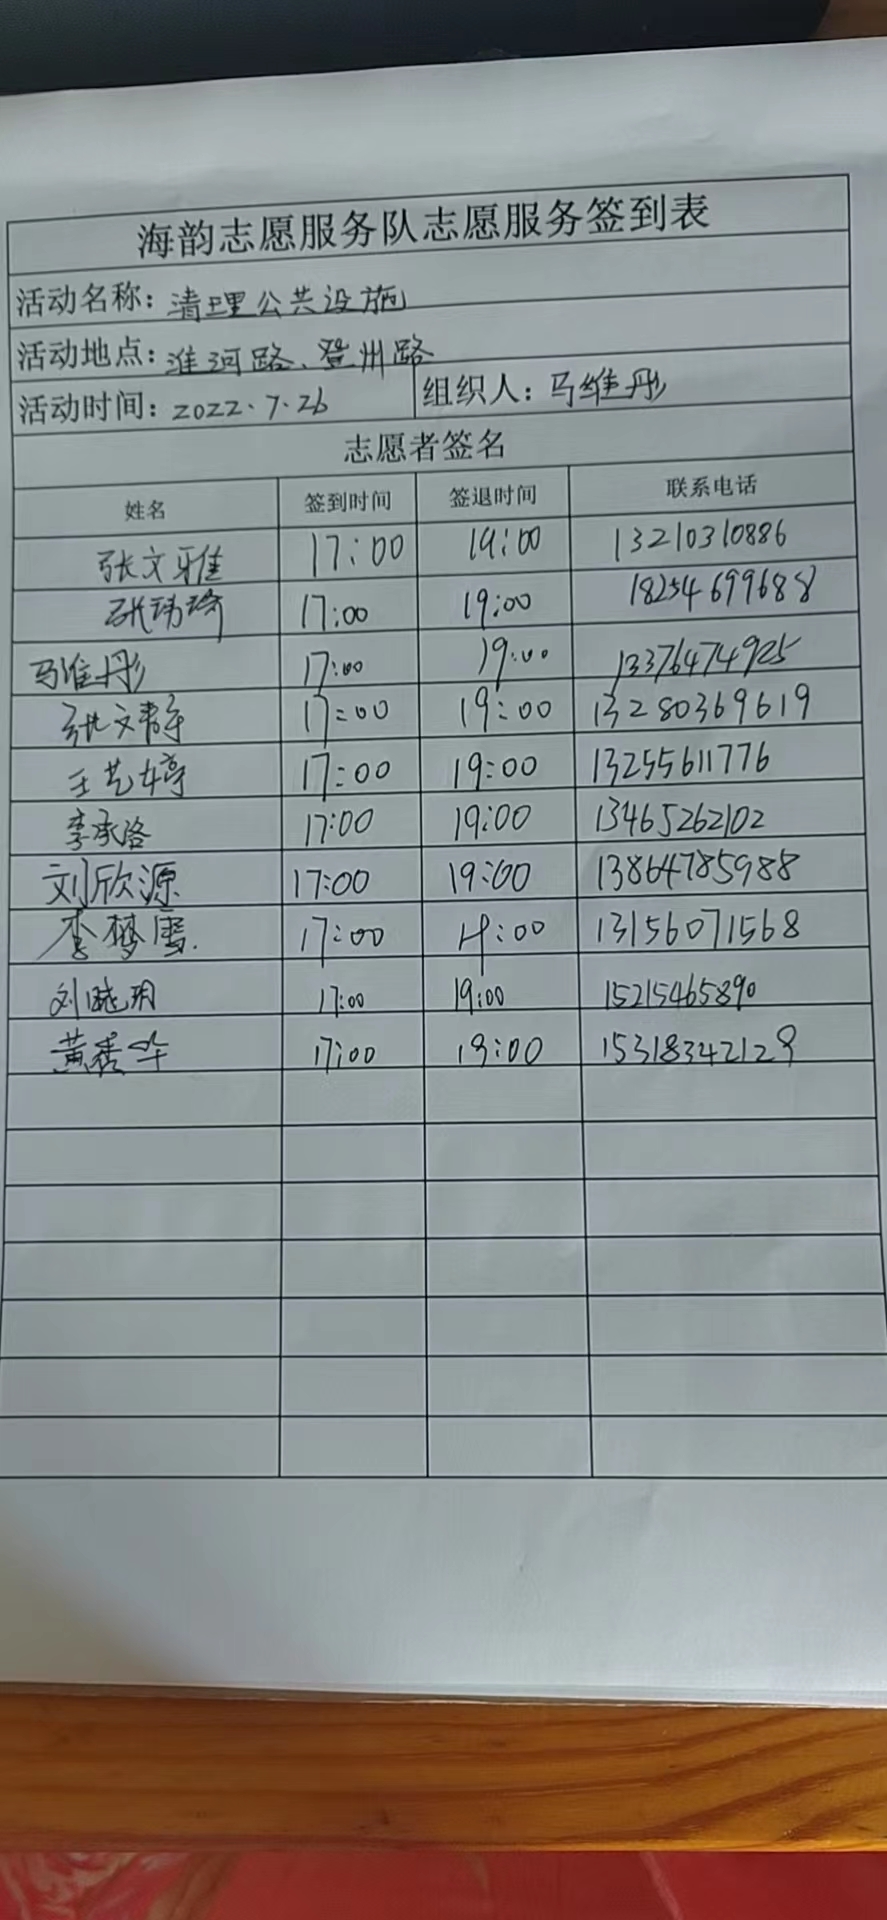 海韵志愿服务队志愿服务签到表
活动名称：清理公共设施
活动地点：淮河路、登州路
活动时间：2022.7.26 组织人：马维彤
志愿者签名
姓名 签到时间 签退时间 联系电话
张文雅 17:00 19:00 13210310886
张琦 17:00 19:00 18254699688
马维彤 17:00 19:00 13376474925
张文静 17:00 19:00 13280369619
王艺婷 17:00 19:00 13255611776
李承洛 17:00 19:00 13465262102
刘欣源 17:00 19:00 13864785988
李梦雪. 17:00 19:00 13156071568
刘晓玥 17:00 19:00 15215465890
黄秀华 17:00 19:00 15318342129